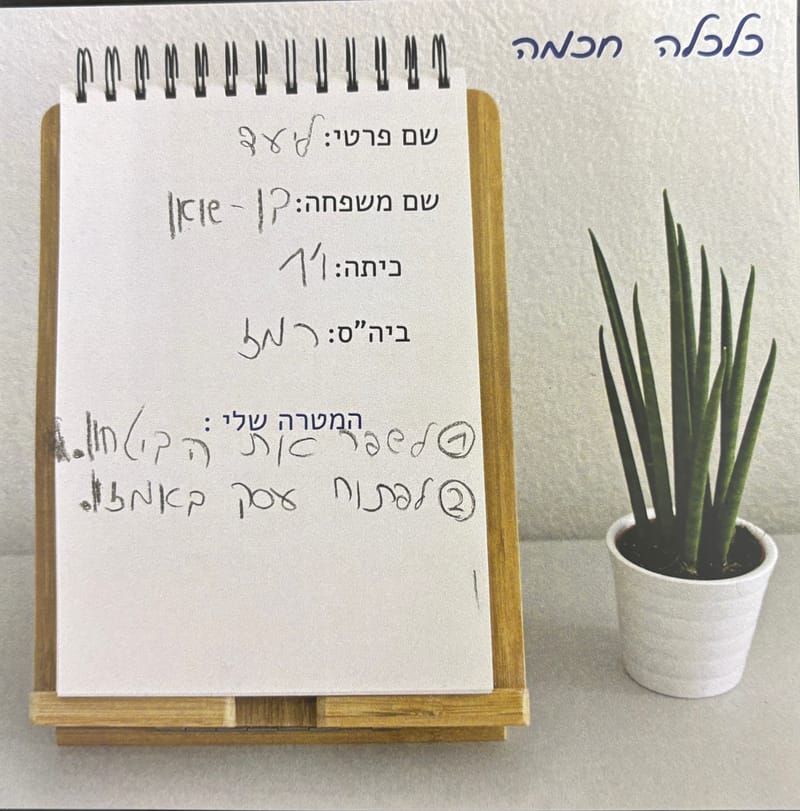 כלכלה חכמה
שם פרטי: ליעד
שם משפחה: בן-שואן
כיתה: ו'1
ביה"ס: רמז
המטרה שלי :
① לשפר את הביטחון.
② לפתוח עסק באמזון.